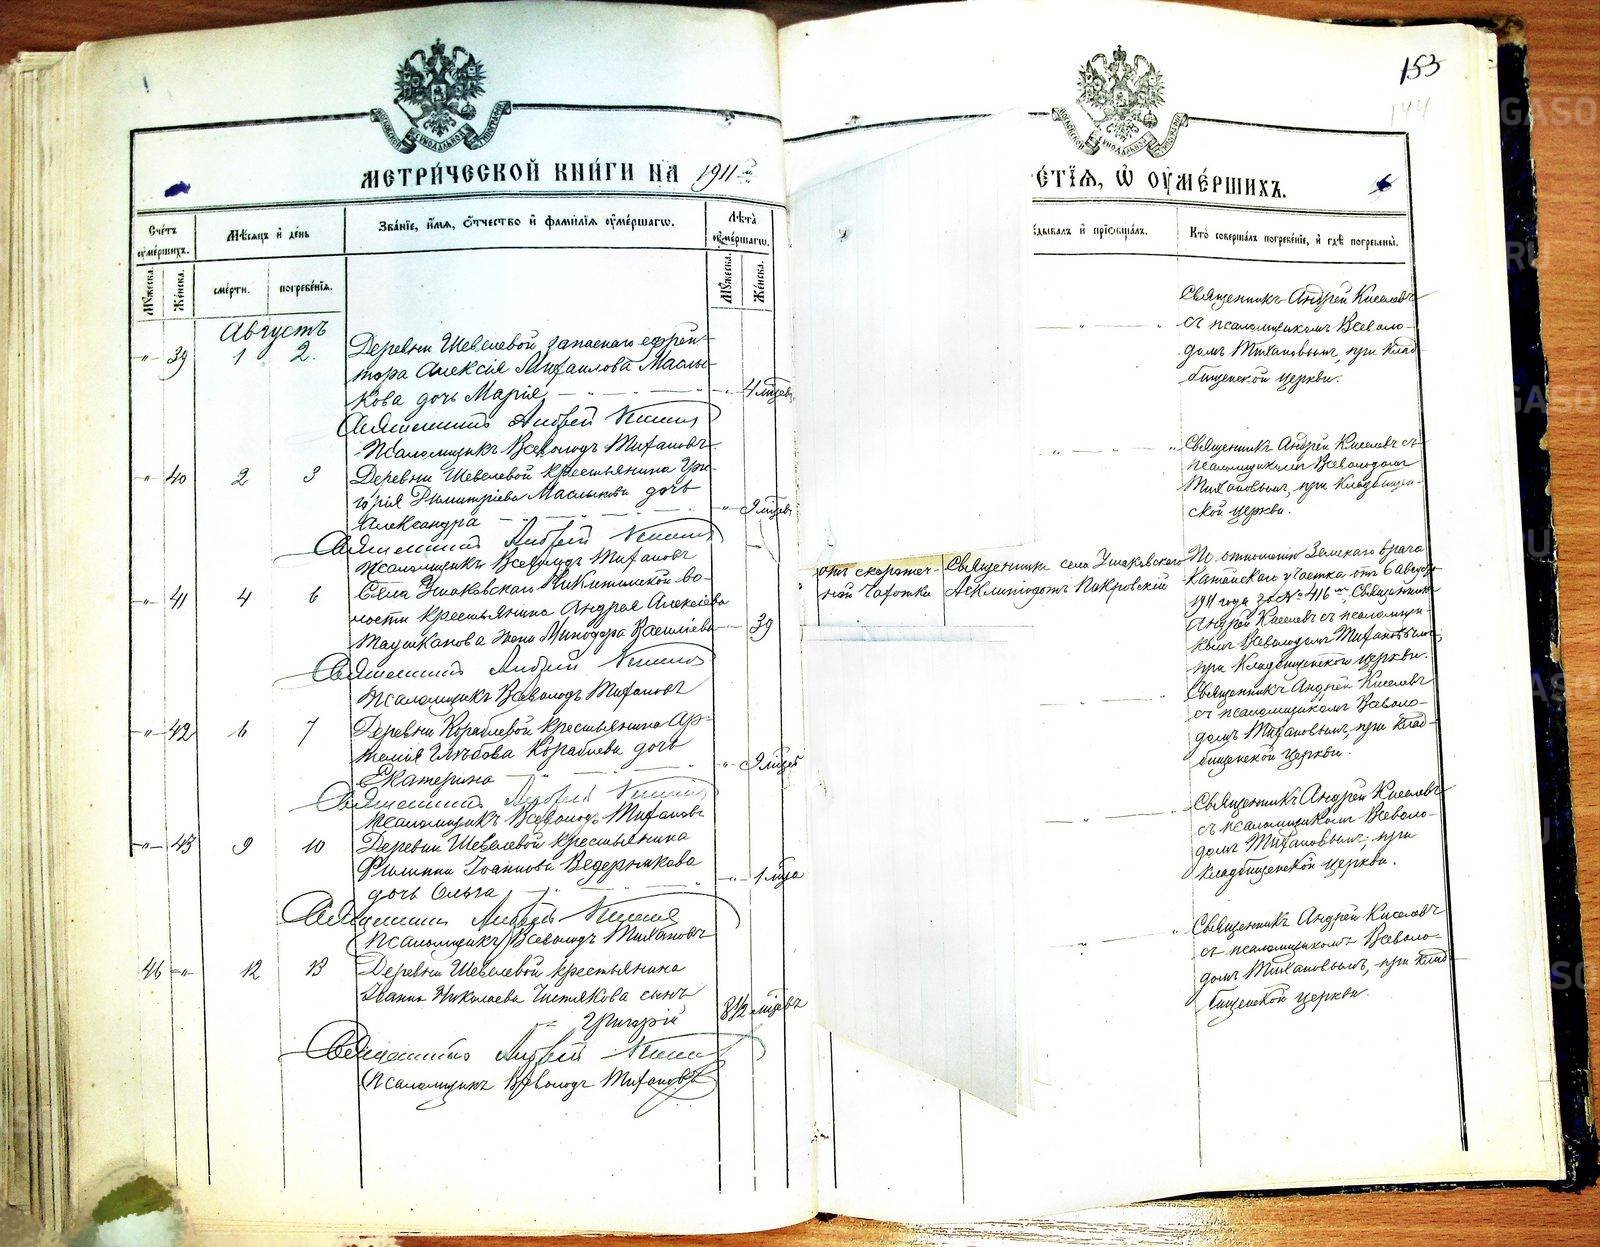 153
144
МОСКОВСКОЙ СѴНОДАЛЬНОЙ ТИПОГРАФІИ
МОСКОВСКОЙ СѴНОДАЛЬНОЙ ТИПОГРАФІИ
МЕТРИ́ЧЕСКОЙ КНИ́ГИ НА 1911
Сче́тъ ᲂу҆ме́ршихъ.
Мѣ́сяцъ и҆ де́нь
Зва́нїе, и҆́мя, ѻ҆́тчество и҆ фами́лїя ᲂу҆ме́ршагѡ.
Лѣ́та ᲂу҆ме́ршагѡ.
Мꙋ́жеска.
Же́нска.
сме́рти.
погребе́нїя.
Мꙋ́жеска.
Же́нска.
Августъ
-"- 39 1 2. Деревни Шевелевой запаснаго ефрей-
тора Алексія Михаилова Маслы-
кова дочь Марія - " - 4 мѣсев
Священникъ Андрей Киселев
Псаломщикъ Всеволодъ Тихановъ
-"- 40 2 3 Деревни Шевелевой крестьянина Гри-
горія Димитріева Маслыкова дочь
Александра - " - 9 мѣсев
Священникъ Андрей Киселев
Псаломщикъ Всеволодъ Тихановъ
-"- 41 4 6 Села Ушаковскаго Никитинской во-
лости крестьянина Андрея Алексіева
Таушканова жена Минодора Василіева - 39
Священникъ Андрей Киселев
Псаломщикъ Всеволодъ Тихановъ
-"- 42 6 7 Деревни Кораблевой крестьянина Ар-
темія Глѣбова Кораблева дочь
Екатерина - " - 9 мѣсев
Священникъ Андрей Киселев
Псаломщикъ Всеволодъ Тихановъ
-"- 43 9 10 Деревни Шевелевой крестьянина
Филиппа Іоаннова Ведерникова
дочь Ольга - " - 1 мѣса
Священникъ Андрей Киселев
Псаломщикъ Всеволодъ Тихановъ
46 -"- 12 13 Деревни Шевелевой крестьянина
Іванна Николаева Чистякова сынъ
Григорій 8 1/2 мѣсевъ
Священникъ Андрей Киселев
Псаломщикъ Всеволодъ Тихановъ
Е́ТЇЯ, Ѽ ОУМЕ́РШИХЪ.
ѣдывалъ и҆ прїѡбща́лъ.
Кто̀ соверша́лъ погребе́нїе, и҆ гдѣ̀ погребены̀.
Священникъ Андрей Киселевъ
съ псаломщикомъ Всеволо-
домъ Тихановымъ, при клад-
бищенской церкви.
Священникъ Андрей Киселевъ съ
псаломщикомъ Всеволодомъ
Тихановымъ, при кладбищен-
ской церкви.
отъ скоротеч-
ной чахотки
Священникъ села Ушаковскаго
Асклипіодотъ Покровскій
По отношенію Земскаго врача
Катайскаго участка отъ 6 августа
1911 года за № 416 Священникъ
Андрей Киселевъ съ псаломщи-
комъ Всеволодомъ Тихановымъ,
при кладбищенской церкви.
Священникъ Андрей Киселевъ
съ псаломщикомъ Всеволо-
домъ Тихановымъ, при клад-
бищенской церкви.
Священникъ Андрей Киселевъ
съ псаломщикомъ Всеволо-
домъ Тихановымъ, при
кладбищенской церкви.
Священникъ Андрей Киселевъ
съ псаломщикомъ Всеволо-
домъ Тихановымъ, при клад-
бищенской церкви.
GASO
RU
GASO